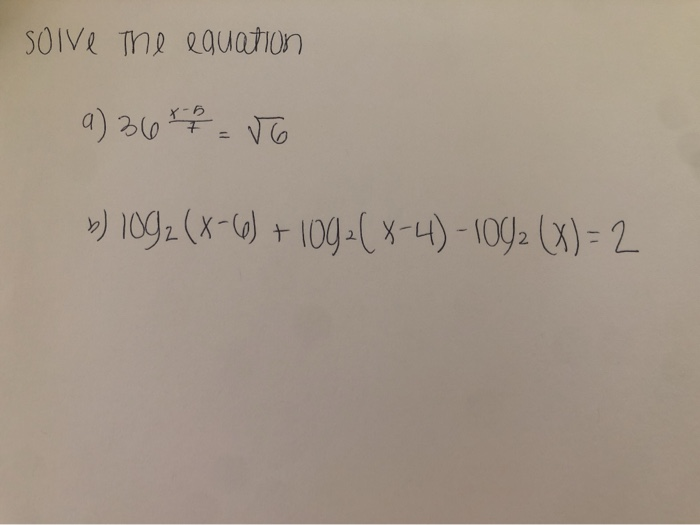 solve the equation
a) 36^(x-5)/7 = √6
b) log₂(x-6) + log₂(x-4) - log₂(x) = 2